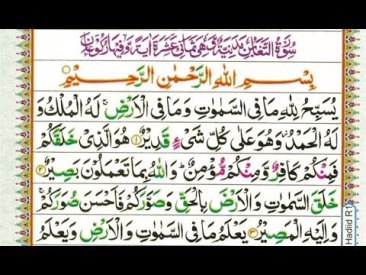 سُوْرَةُ التَّغَابُنِ مَدَنِيَّةٌ وَّهِيَ ثَمَانِيَ عَشْرَةَ اٰيَةً وَّفِيْهَا رُكُوْعَانِ
بِسْمِ اللّٰهِ الرَّحْمٰنِ الرَّحِيْمِ
يُسَبِّحُ لِلّٰهِ مَا فِي السَّمٰوٰتِ وَمَا فِي الْاَرْضِ ۚ لَهُ الْمُلْكُ وَ
لَهُ الْحَمْدُ ۫ وَهُوَ عَلٰى كُلِّ شَيْءٍ قَدِيْرٌ ۝۱ هُوَ الَّذِيْ خَلَقَكُمْ
فَمِنْكُمْ كَافِرٌ وَّمِنْكُمْ مُّؤْمِنٌ ؕ وَاللّٰهُ بِمَا تَعْمَلُوْنَ بَصِيْرٌ ۝۲
خَلَقَ السَّمٰوٰتِ وَالْاَرْضَ بِالْحَقِّ وَصَوَّرَكُمْ فَاَحْسَنَ صُوَرَكُمْ ۚ
وَاِلَيْهِ الْمَصِيْرُ ۝۳ يَعْلَمُ مَا فِي السَّمٰوٰتِ وَالْاَرْضِ وَيَعْلَمُ
Hadiid R